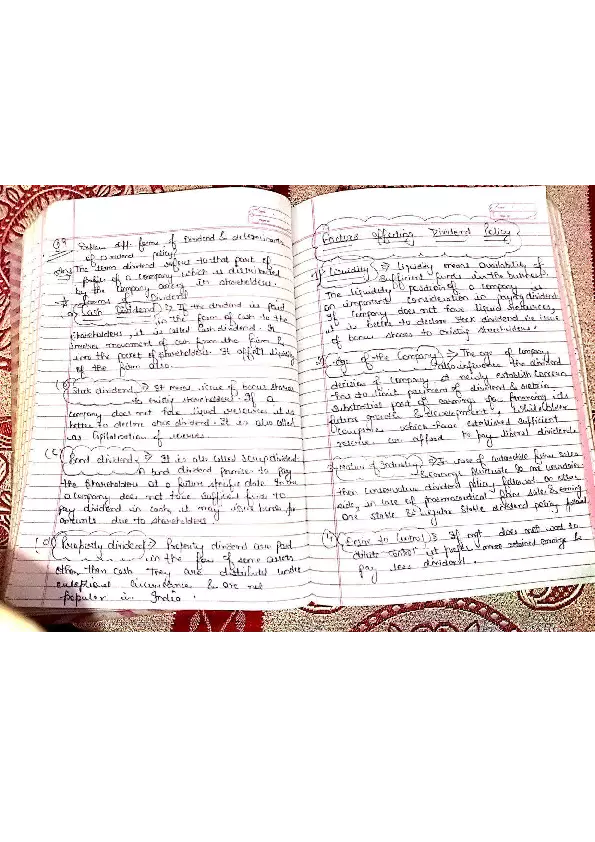 Q9 Explain diff. forms of Dividend & determinants
of Dividend policy.
Ans The term dividend refers to that part of
profits of a company which is distributed
by the company among its shareholders.
→ forms of Dividend
(a) Cash Dividend ⇒ If the dividend is paid
in the form of cash to the
shareholders, it is called Cash dividend. It
involve movement of cash from the firm &
into the pocket of shareholders. It affect liquidity
of the firm also.
(b) Stock dividend ⇒ It means issue of bonus shares
to existing shareholders. If a
company does not have liquid resources it is
better to declare stock dividend. It is also called
as Capitalisation of reserves.
(c) Bond dividend ⇒ It is also called scrip dividend.
A bond dividend promise to pay
the shareholders at a future specific date. In case
a company does not have sufficient funds to
pay dividend in cash, it may issue bonds for
amounts due to shareholders.
(d) Property dividend ⇒ Property dividend are paid
in the form of some assets
other than cash. They are distributed under
exceptional circumstance & are not
popular in India.
Factors affecting Dividend Policy
1) Liquidity ⇒ liquidity means availability of
sufficient funds in the business.
The liquidity position of a company is
an important consideration in paying dividend.
If company does not have liquid resources,
it is better to declare stock dividend i.e. issue
of bonus shares to existing shareholders.
2) Age of the Company ⇒ The age of company
also influence the dividend
decision of company. A newly establish concern
has to limit payment of dividend & retain
substantial part of earnings for financing its
future growth & development, while older
companies which have established sufficient
reserve can afford to pay liberal dividends
3) Nature of Industry ⇒ In case of automobile firms sales
& earnings fluctuate so
then conservative dividend policy followed on other
side, in case of pharmaceutical firms sales & earning
are stable & regular stable dividend policy
4) to control ⇒ If not does not want to
dilute control it prefer more retained earnings &
pay less dividend.